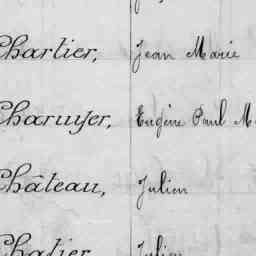 Chartier, Jean Marie
Charuyer, Eugène Paul M
Château, Julien
Chatier Julien